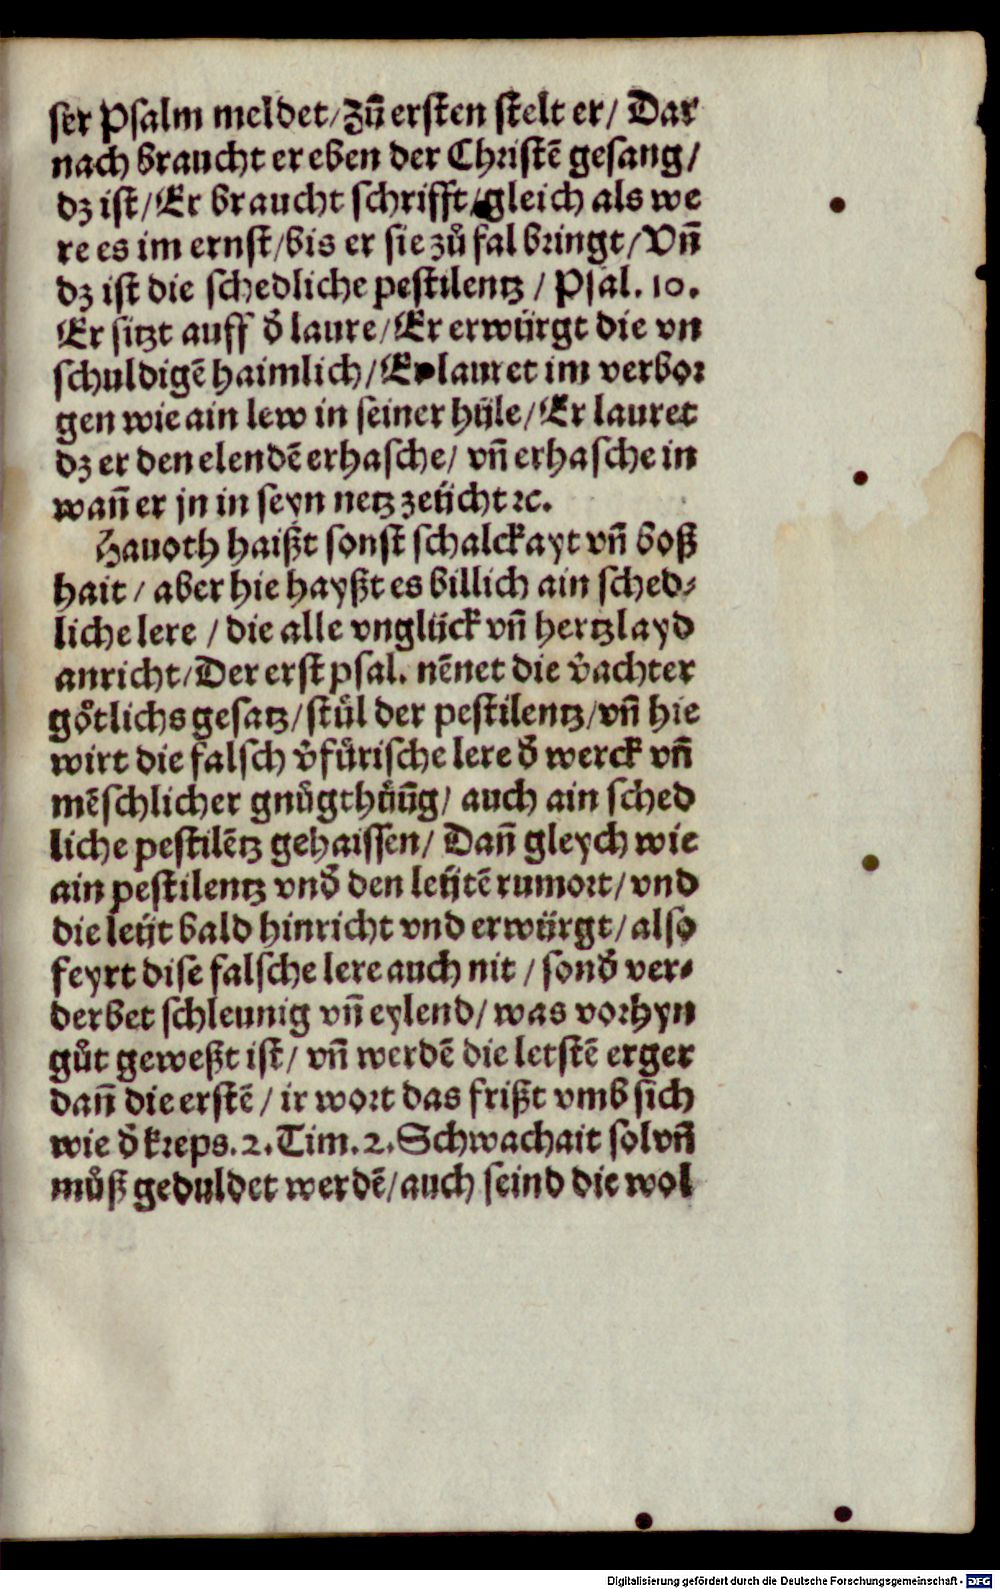 ser Psalm meldet/Zuͦn̄ ersten stelt er/ Dar
nach braucht er eben der Christē gesang/
dz ist/Er braucht schrifft/gleich als we
re es im ernst/bis er sie zuͦ fal bringt/Vn̄
dz ist die schedliche pestilentz / Psal. 10.
Er sitzt auff d̄ laure/Er erwürgt die vn
schuldigē haimlich/Er lauret im verbor
gen wie ain lew in seiner hüle/Er lauret
dz er den elendē erhasche/ vn̄ erhasche in
wan̄ er jn in seyn netz zeücht ꝛc.
Hauoth haißt sonst schalckayt vn̄ boß
hait / aber hie hayßt es billich ain sched⸗
liche lere / die alle vnglück vn̄ hertzlayd
anricht/Der erst psal. nēnet die v̄achter
goͤtlichs gesatz/stuͦl der pestilentz/vn̄ hie
wirt die falsch v̄fuͤrische lere d̄ werck vn̄
mēschlicher gnuͦgthuͦūg/ auch ain sched
liche pestilētz gehaissen/ Dan̄ gleych wie
ain pestilentz vnd̄ den leütē rumort/vnd
die leüt bald hinricht vnd erwürgt/also
feyrt dise falsche lere auch nit / sond̄ ver⸗
derbet schleunig vn̄ eylend/ was vorhyn
guͦt geweßt ist/ vn̄ werdē die letstē erger
dan̄ die erstē / ir wort das frißt vmb sich
wie d̄ kreps. 2. Tim. 2. Schwachait sol vn̄
muͦß geduldet werdē/auch seind die wol
Digitalisierung gefördert durch die Deutsche Forschungsgemeinschaft - DFG